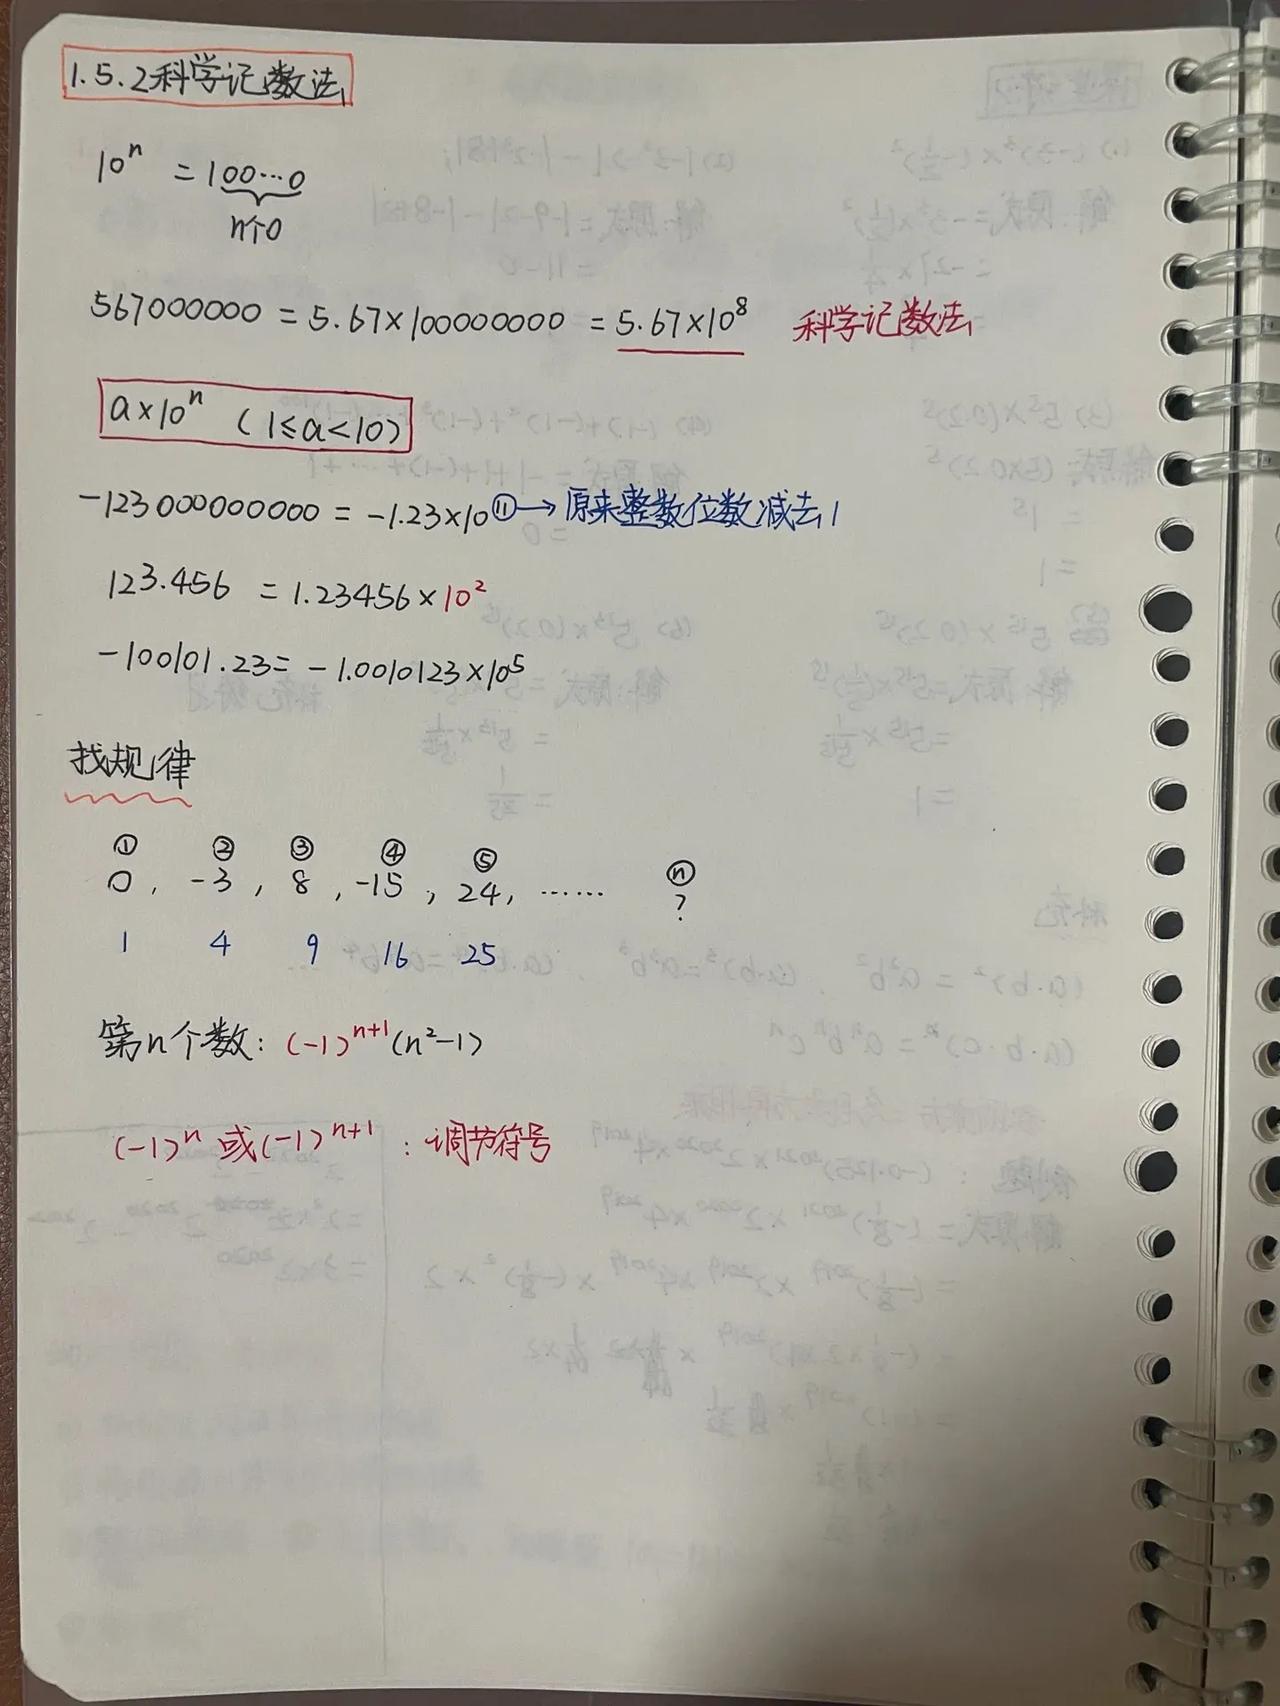 1.5.2科学记数法
10ⁿ = 100…0
n个0
567000000 = 5.67×100000000 = 5.67×10⁸ 科学记数法
a×10ⁿ (1≤a<10)
-123000000000 = -1.23×10⑪→原来整数位数减去1
123.456 = 1.23456×10²
-100101.23= -1.0010123×10⁵
找规律
① ② ③ ④ ⑤ ⓝ
0, -3, 8, -15, 24, …… ?
1 4 9 16 25
第n个数: (-1)ⁿ⁺¹(n²-1)
(-1)ⁿ 或(-1)ⁿ⁺¹ : 调节符号